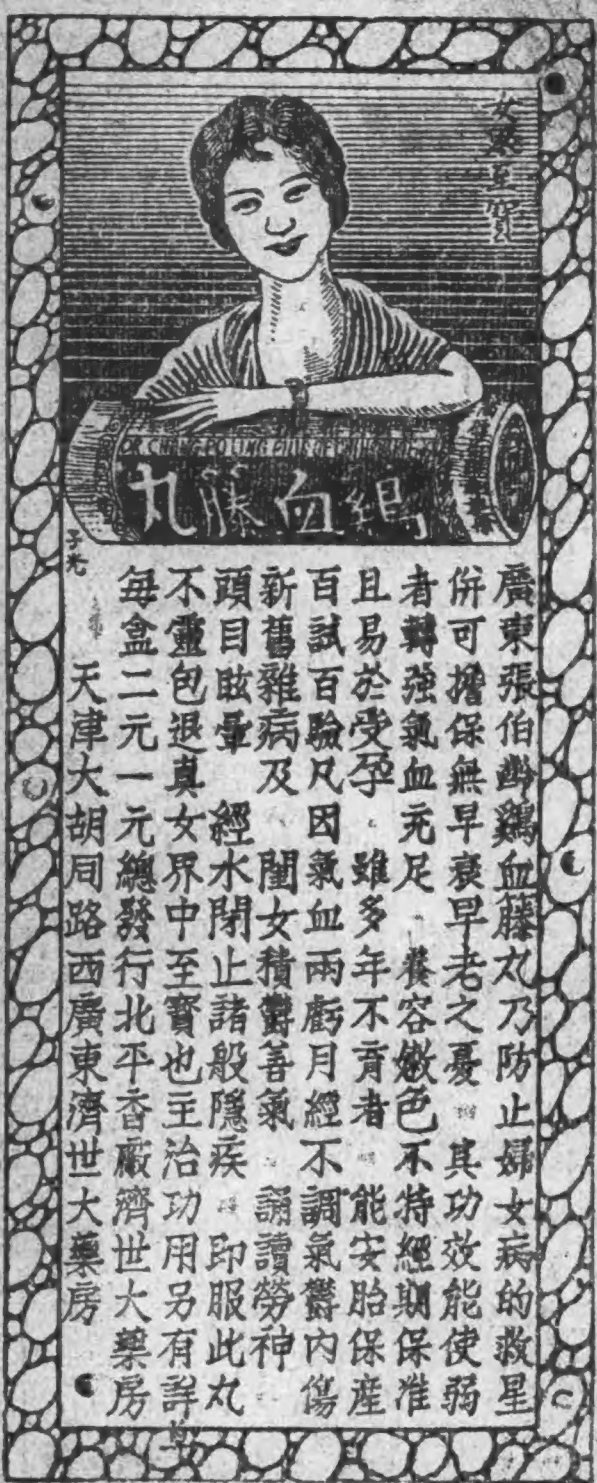 女界至寶
鷄血藤丸
廣東張伯齡鷄血籐丸乃防止婦女病的救星
併可擔保無早衰早老之憂 其功效能使弱
者轉強氣血充足 養容嫩色不特經期保准
且易於受孕 雖多年不育者 能安胎保産
百試百驗凡因氣血兩虧月經不調氣鬱内傷
新舊雜病及 閨女積鬱善氣 誦讀勞神
頭目眩暈 經水閉止諸般隱疾 即服此丸
不靈包退真女界中至寳也主治功用另有詳單
每盒二元一元總發行北平香廠濟世大藥房
天津大胡同路西廣東濟世大藥房
子光